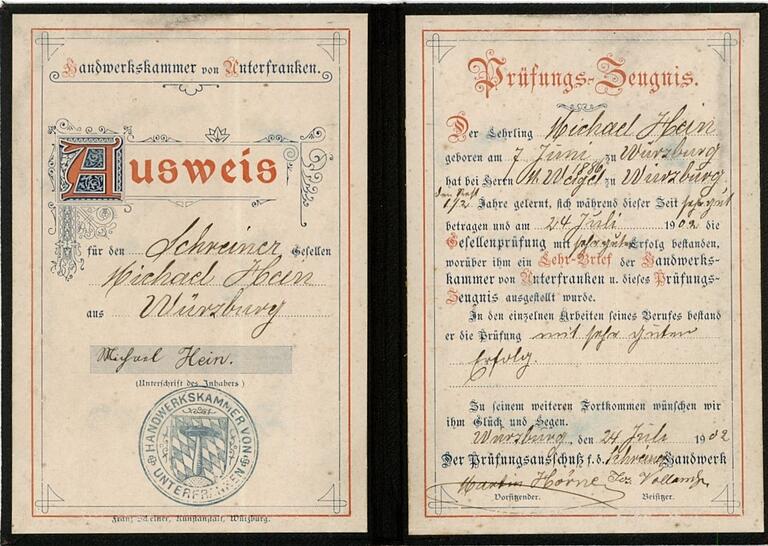 Handwerkskammer von Unterfranken.
Ausweis
für den Schreiner Gesellen
Michael Hein
aus Würzburg
Michael Hein.
(Unterschrift des Inhabers)
HANDWERKSKAMMER VON UNTERFRANKEN
Franz Scheiner, Kunstanstalt, Würzburg.
Prüfungs-Zeugnis.
Der Lehrling Michael Hein
geboren am 7 Juni 1886 zu Würzburg
hat bei Herrn M. Weigel zu Würzburg
1/2 Jahre gelernt, sich während dieser Zeit sehr gut
betragen und am 24 Juli 1902 die
Gesellenprüfung mit sehr gutem Erfolg bestanden,
worüber ihm ein Lehr-Brief der Handwerks-
kammer von Unterfranken u. dieses Prüfungs-
Zeugnis ausgestellt wurde.
In den einzelnen Arbeiten seines Berufes bestand
er die Prüfung mit sehr gutem
Erfolg.
Zu seinem weiteren Fortkommen wünschen wir
ihm Glück und Segen.
Würzburg, den 24 Juli 1902
Der Prüfungsausschuß f. d. Schreiner Handwerk
Martin Hörne
Vorsitzender. Beisitzer.